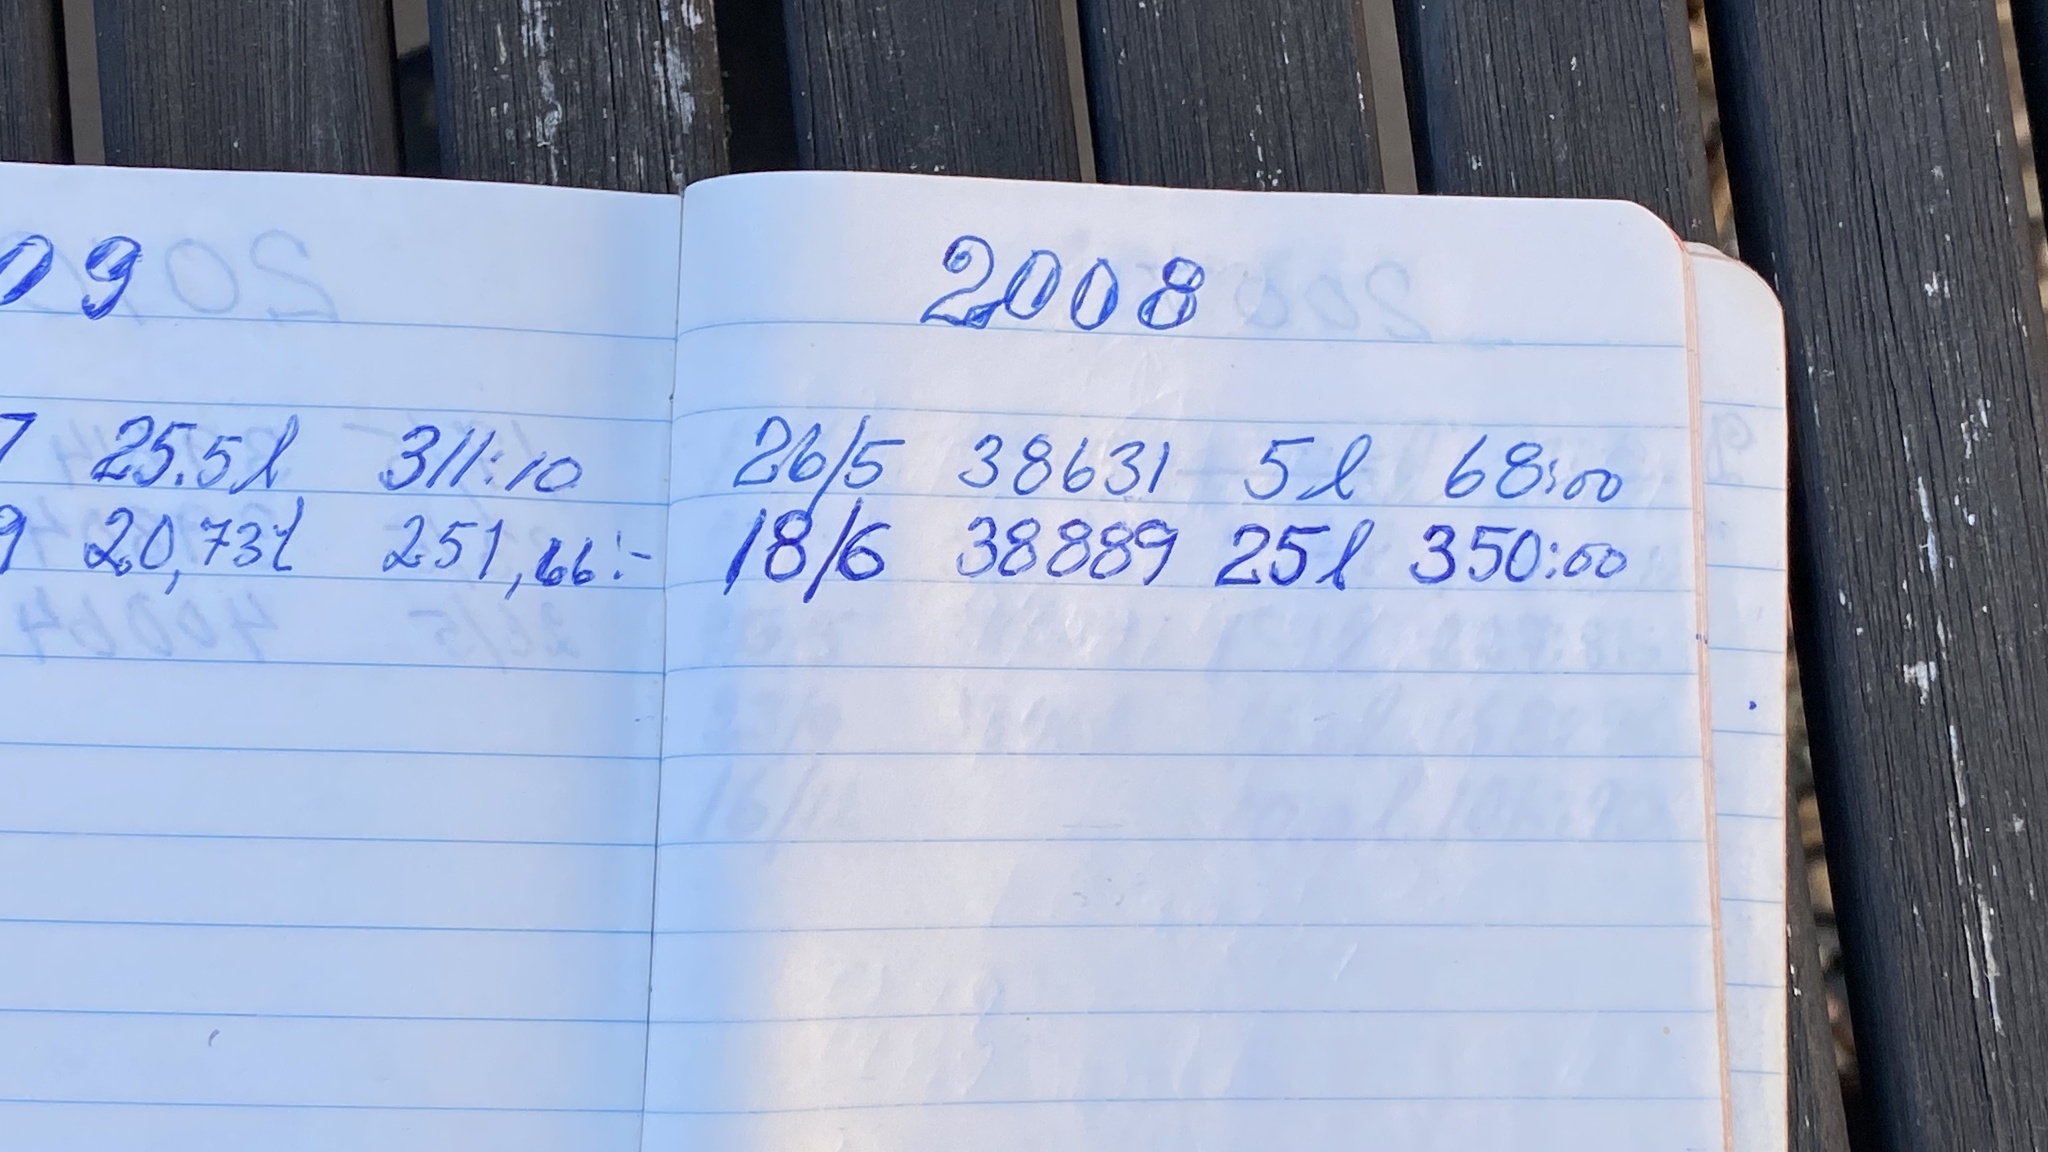 09
7 25.5l 311:10
9 20,73l 251,66:-
2008
26/5 38631 5l 68:00
18/6 38889 25l 350:00